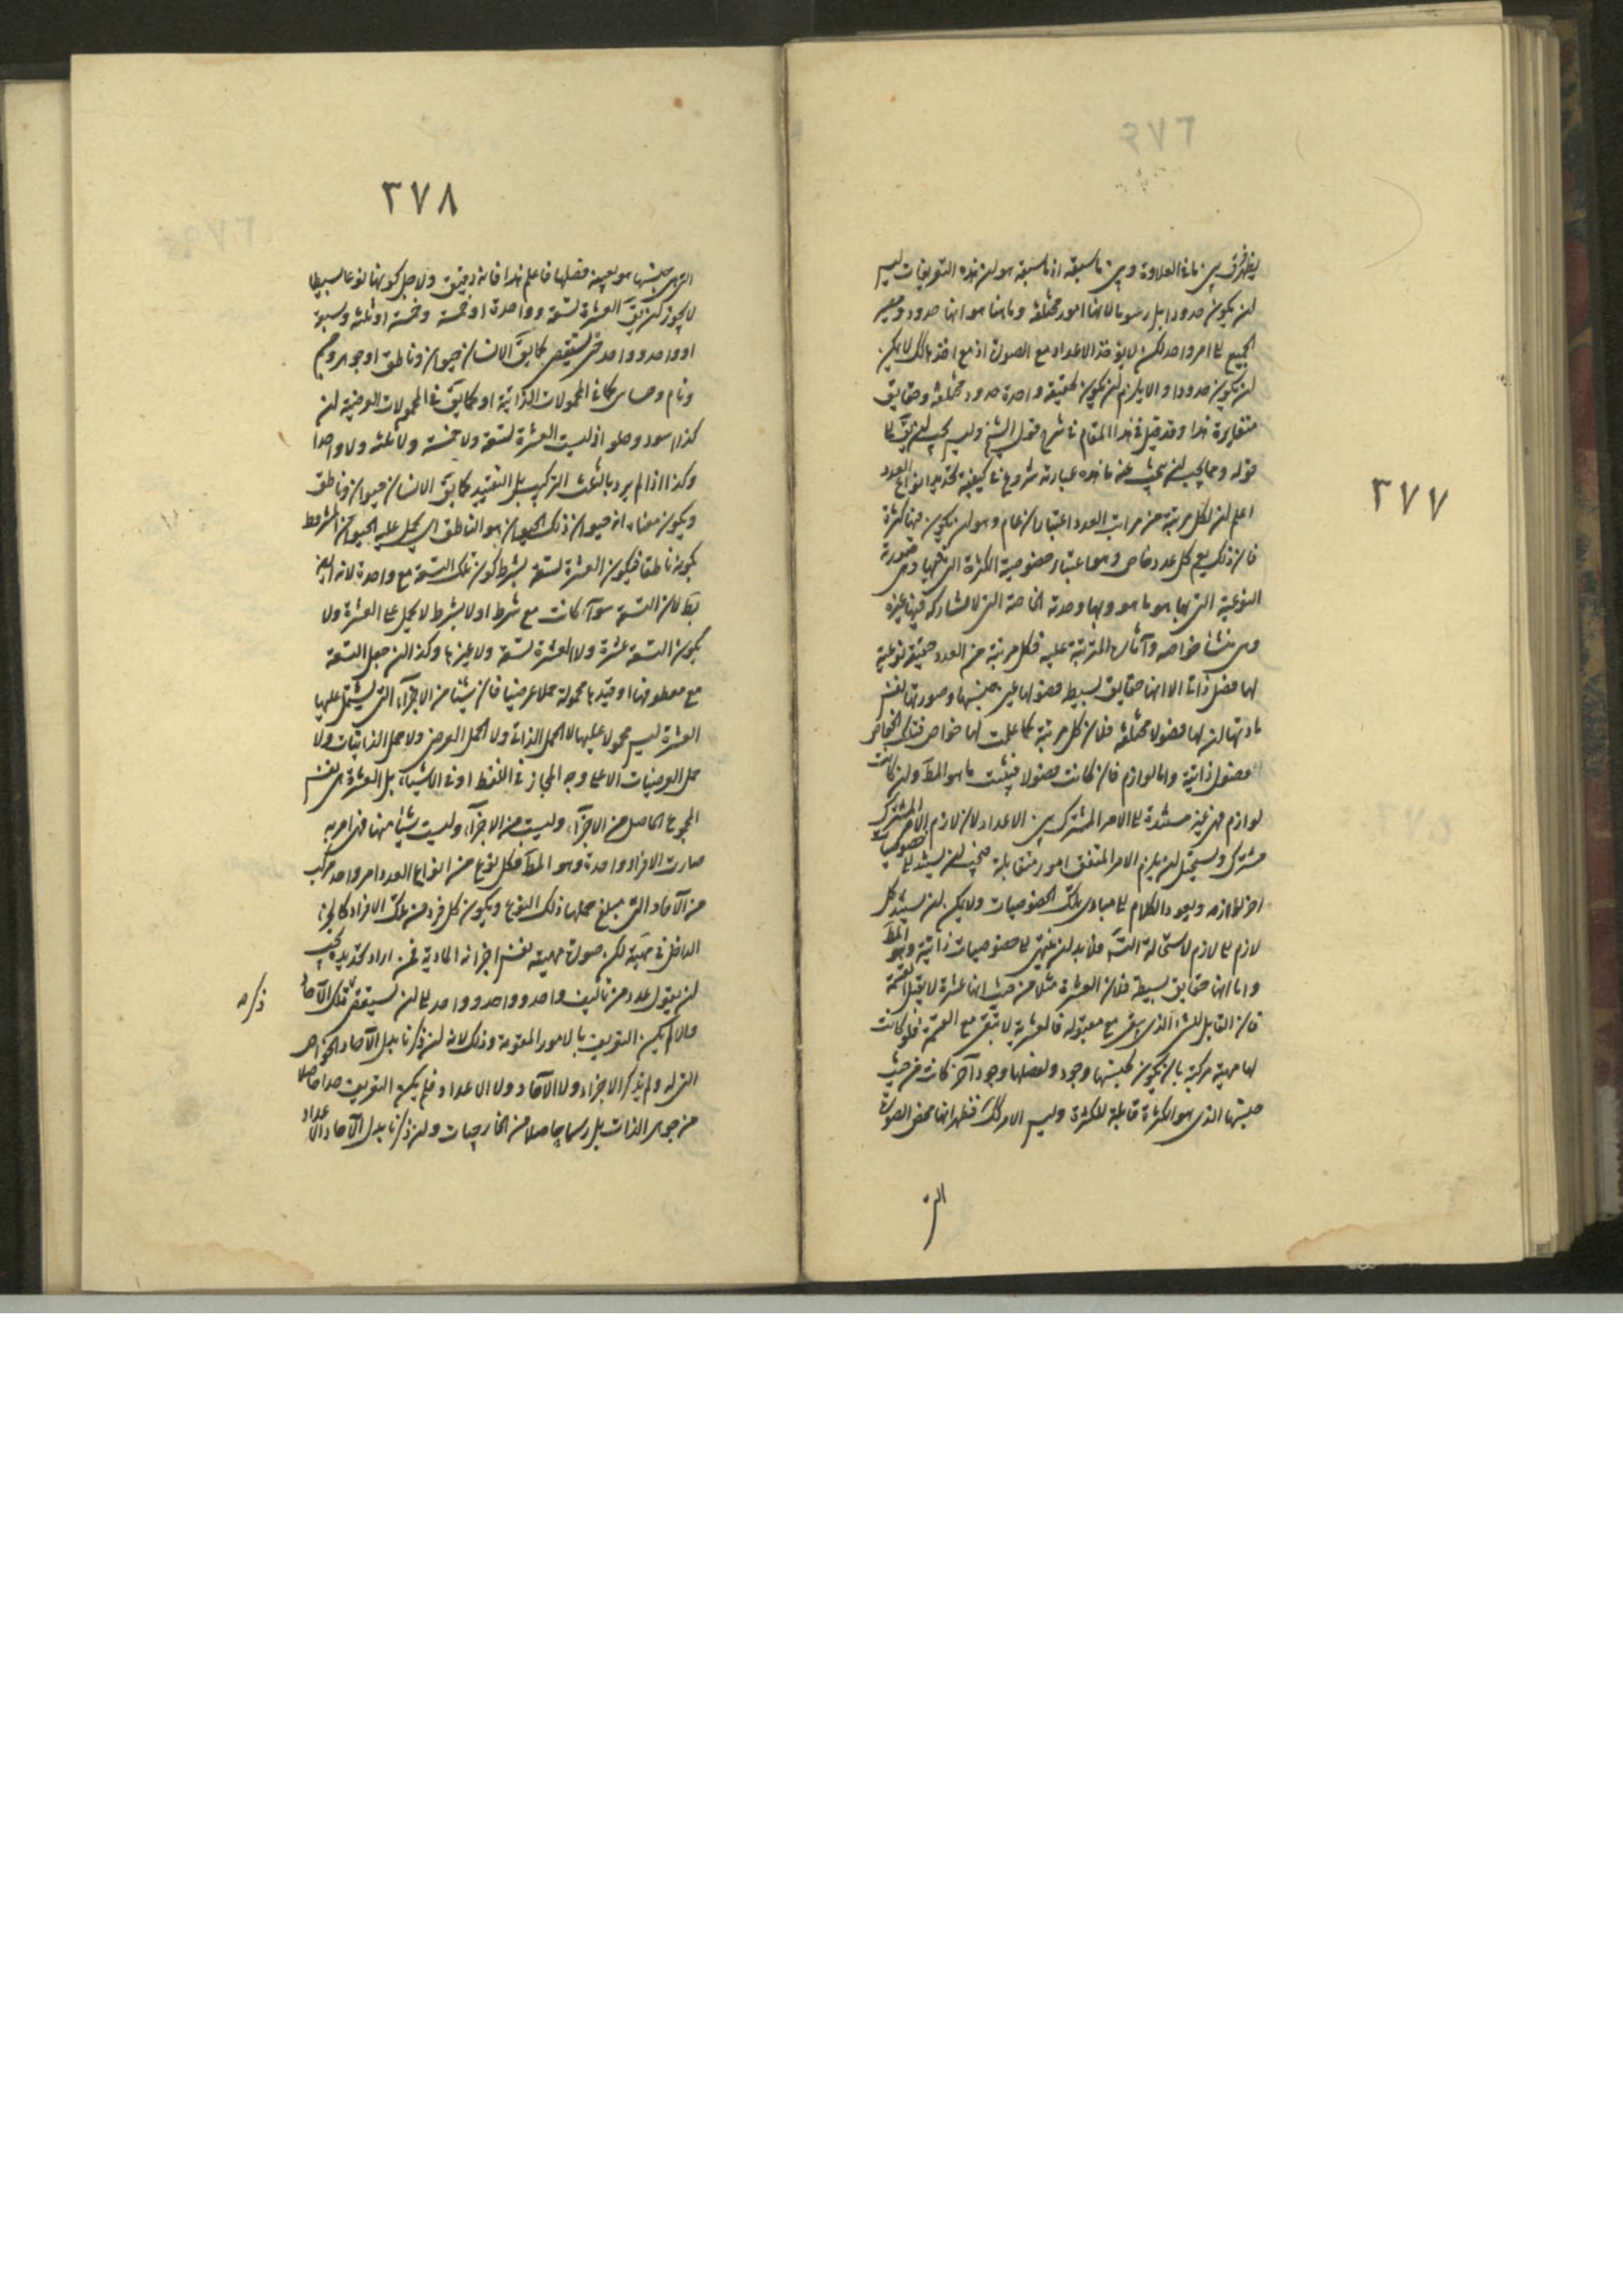 ٣٧٧
يظهر فرق بين ما فى العلاوة وبين ما سبقه اذ ما سبقه هو ان هذه التعريفات ليس
لن يكون حدودا بل رسوما لانها امور مختلفة وما هنا هو انها حدود ومعـ
الجميع الى امر واحد لكن لا يؤخذ الاعداد مع الصورة اذ مع اخذها كك لا يمكن
لن يكون حدودا والا يلزم لن يكون لحقيقة واحدة حدود مختلفة وحقايق
متغايرة هذا وقد قيل فى هذا المقام فى شرح قول الشيخ وليس يجب لن يق لما
قوله ومما يجب لن يبحث عنه ما هذه عبارته شروع فى كيفية تحديد انواع العدد
اعلم لن لكل مرتبة من مراتب العدد اعتباران عام وهو لن يكون فيها كثرة
فان ذلك يعم كل عدد وخاص وهو اعتبار خصوصية الكثرة التى فيها وهى صورته
النوعية التى بها هو ما هو وبها وحدته الخاصة التى لا يشاركه فيها غيره
وهى منشا خواصه وآثاره المترتبة عليه فكل مرتبة من العدد حقيقة نوعية
لها فصل ذاتى الا انها حقايق بسيطة فصولها عين جنسها وصورتها نفس
مادتها لن لها فصولا مختلفة فلان كل مرتبة كما علمت لها خواص فتلك الخواص
فصول ذاتية واما لوازم فان كانت فصولا فيثبت ما هو المط ولن كانت
لوازم فهى غير مستندة الى الامر المشترك بين الاعداد لان لازم الامر المشترك
مشترك ويستحيل لن يلزم الامر المتفق امور متقابلة فيجب لن يستند الى خصوصيات
اخر لوازمه ويعود الكلام الى مبادى تلك الخصوصيات ولا يمكن لن يستند كل
لازم الى لازم لاستحالة التسـ فلا بد لن ينتهى الى خصوصيات ذاتية وهو المط
واما انها حقايق بسيطة فلان العشرة مثلا من حيث انها عشرة لا يقبل القسمة
فان القابل للشئ الذى يبقى مع مقبوله فالعشرية لا تبقى مع القسمة فلو كانت
لها مهية مركبة بان يكون لجنسها وجود ولفصلها وجود آخر كانت من حيث
جنسها الذى هو الكثرة قابلة للكثرة وليس الامر كك فظهر انها محض الصورة
التى
٣٧٨
التى جنسها هو بعينه فصلها فاعلم هذا فانه دقيق ولاجل كونها نوعا بسيطا
لا يجوز لن يق العشرة تسعة وواحدة او خمسة وخمسة او ثلثة وسبعة
او واحد وواحد حتى يستقصى كما يق الانسان حيوان وناطق او جوهر وجسم
ونام وحساس كما فى المحمولات الذاتية او كما يق فى المحمولات العرضية لن
كذا اسود وحلو اذ ليست العشرة تسعة ولا خمسة ولا ثلثة ولا واحدا
وكذا اذا لم يرد بالنعت التركيب بل التقييد كما يق الانسان حيوان وناطق
ويكون معناه انه حيوان ذلك الحيوان هو الناطق اى يحمل عليه الحيوان المشروط
بكونه ناطقا فيكون العشرة تسعة بشرط كون تلك التسعة مع واحدة لانه ايض
بط لان التسعة سوآء كانت مع شرط او لا بشرط لا يحمل على العشرة ولا
يكون التسعة عشرة ولا العشرة تسعة ولا غيرها وكذا لن جعل التسعة
مع معطوفها او قيدها محمولة حملا عرضيا فان شيئا من الاجزآء التى يشتمل عليها
العشرة ليس محمولا عليها لا الحمل الذاتى ولا الحمل العرضى ولا حمل الذاتيات ولا
حمل العرضيات الا على وجه المجاز فى اللفظ او فى الاشياء بل العشرة هى نفس
المجموع الحاصل من الاجزآء وليست من الاجزآء وليست شيئا منها فهى امر به
صارت الافراد واحدة وهو المط فكل نوع من انواع العدد امر واحد مركب
من الآحاد التى مبلغ جملتها ذلك النوع ويكون كل فرد من تلك الافراد كالجزء
الداخل فى مهيته لكن صورة مهيته نفس اجزائه المادية فمن اراد تحديده يجب
لن يقول عدد من تاليف واحد وواحد وواحد الى لن يستقصى تلك الآحاد
ذكره
والا لم يكن التعريف بالامور المقومة وذلك لانه لن ذكرنا بدل الآحاد الخواص
التى له ولم يذكر الاجزاء ولا الآحاد ولا الاعداد فلم يكن التعريف حدا حاصلا
من جوهر الذات بل رسما حاصلا من الخارجيات ولن ذكرنا بدل الآحاد الاعداد